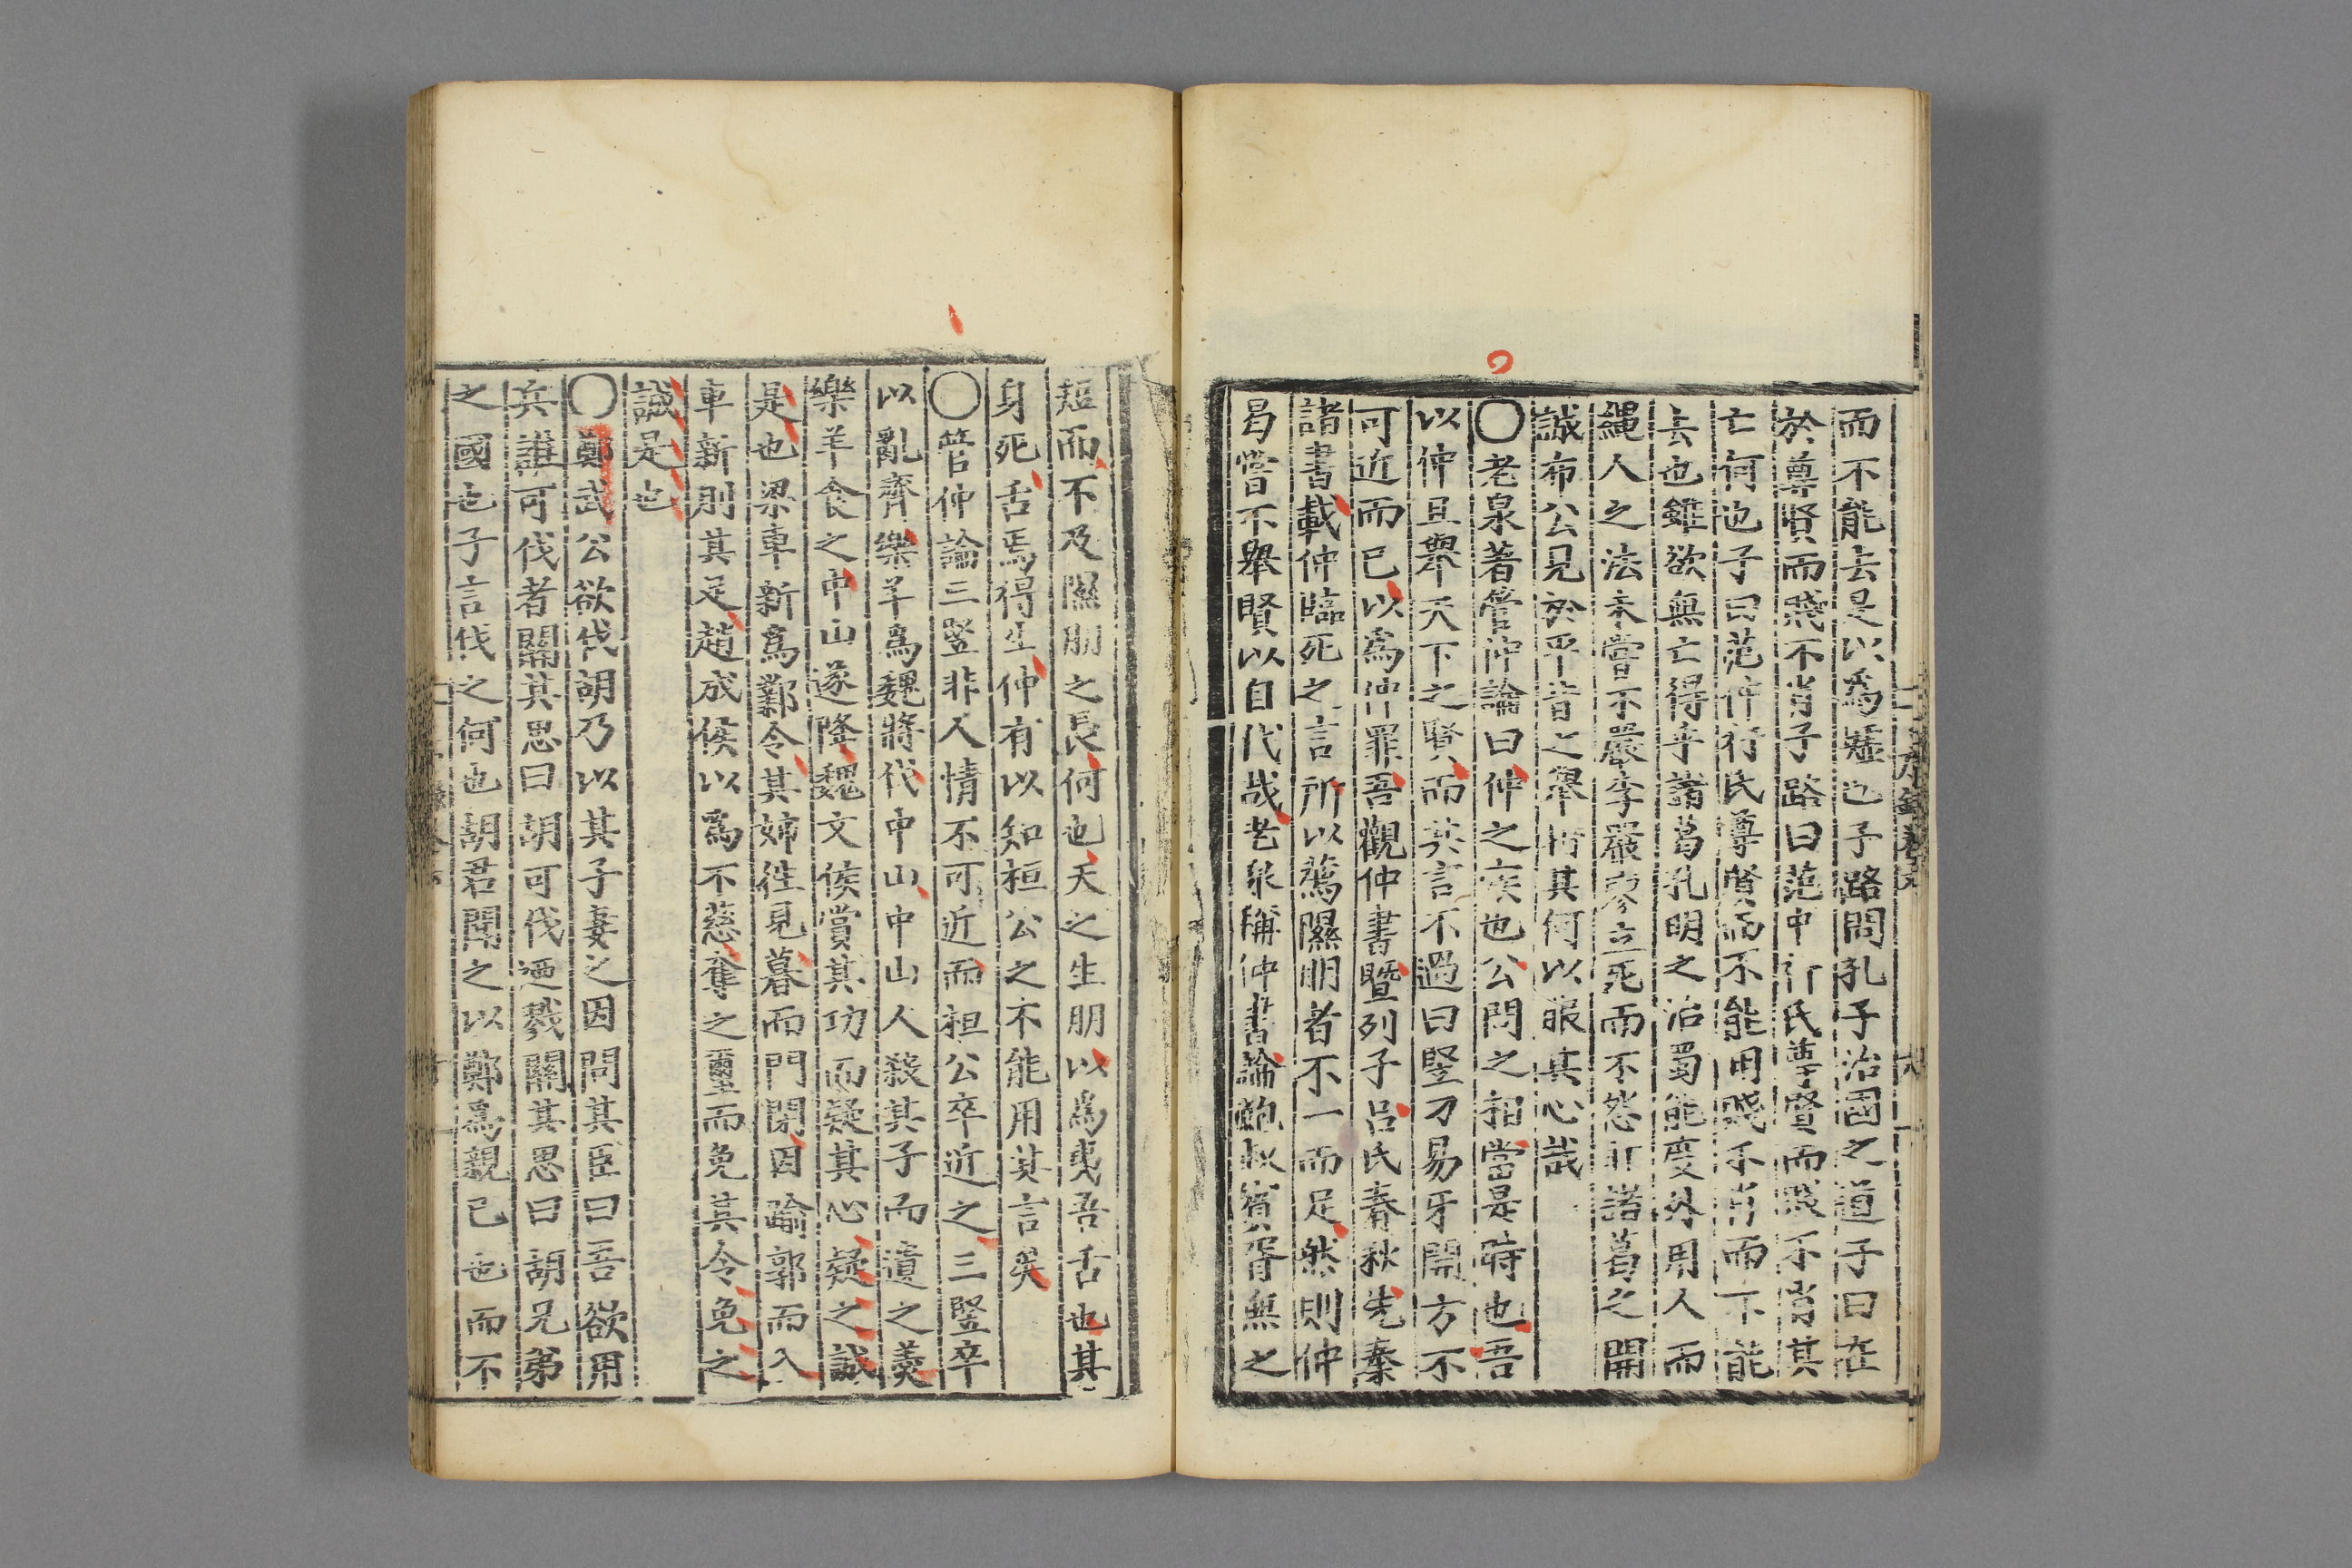 而不能去是以爲墟也子路問孔子治國之道子曰在
於尊賢而賤不肖子路曰范中行氏尊賢而賤不肖其
亡何也子曰范中行氏尊賢而不能用賤不肖而不能
去也雖欲無亡得乎諸葛孔明之治蜀能变外用人而
繩人之法未嘗不嚴李嚴廖立死而不怨非諸葛之開
誠布公見於平昔之舉措其何以服其心哉
〇老泉著管仲論曰仲之疾也公問之相當是時也吾
以仲且舉天下之賢而其言不過曰竪刁易牙開方不
可近而已以爲仲罪吾觀仲書暨列子呂氏春秋先秦
諸書載仲臨死之言所以薦隰朋者不一而足然則仲
曷嘗不舉賢以自代哉老泉稱仲書論鮑叔賓胥無之
短而不及隰朋之長何也夭之生朋以爲夷吾舌也其
身死舌焉得生仲有以知桓公之不能用其言矣
〇管仲論三竪非人情不可近而桓公卒近之三竪卒
以亂齊樂羊爲魏將代中山中山人殺其子而遺之羹
樂羊食之中山遂降魏文侯賞其功而疑其心疑之誠
是也梁車新爲鄴令其姊徃見暮而門閉因踰郭而入
車新刖其足趙成侯以爲不慈奪之璽而免其令免之
誠是也
〇鄭武公欲伐胡乃以其子妻之因問其臣曰吾欲用
兵誰可伐者關其思曰胡可伐迺戮關其思曰胡兄弟
之國也子言伐之何也胡君聞之以鄭爲親己也而不